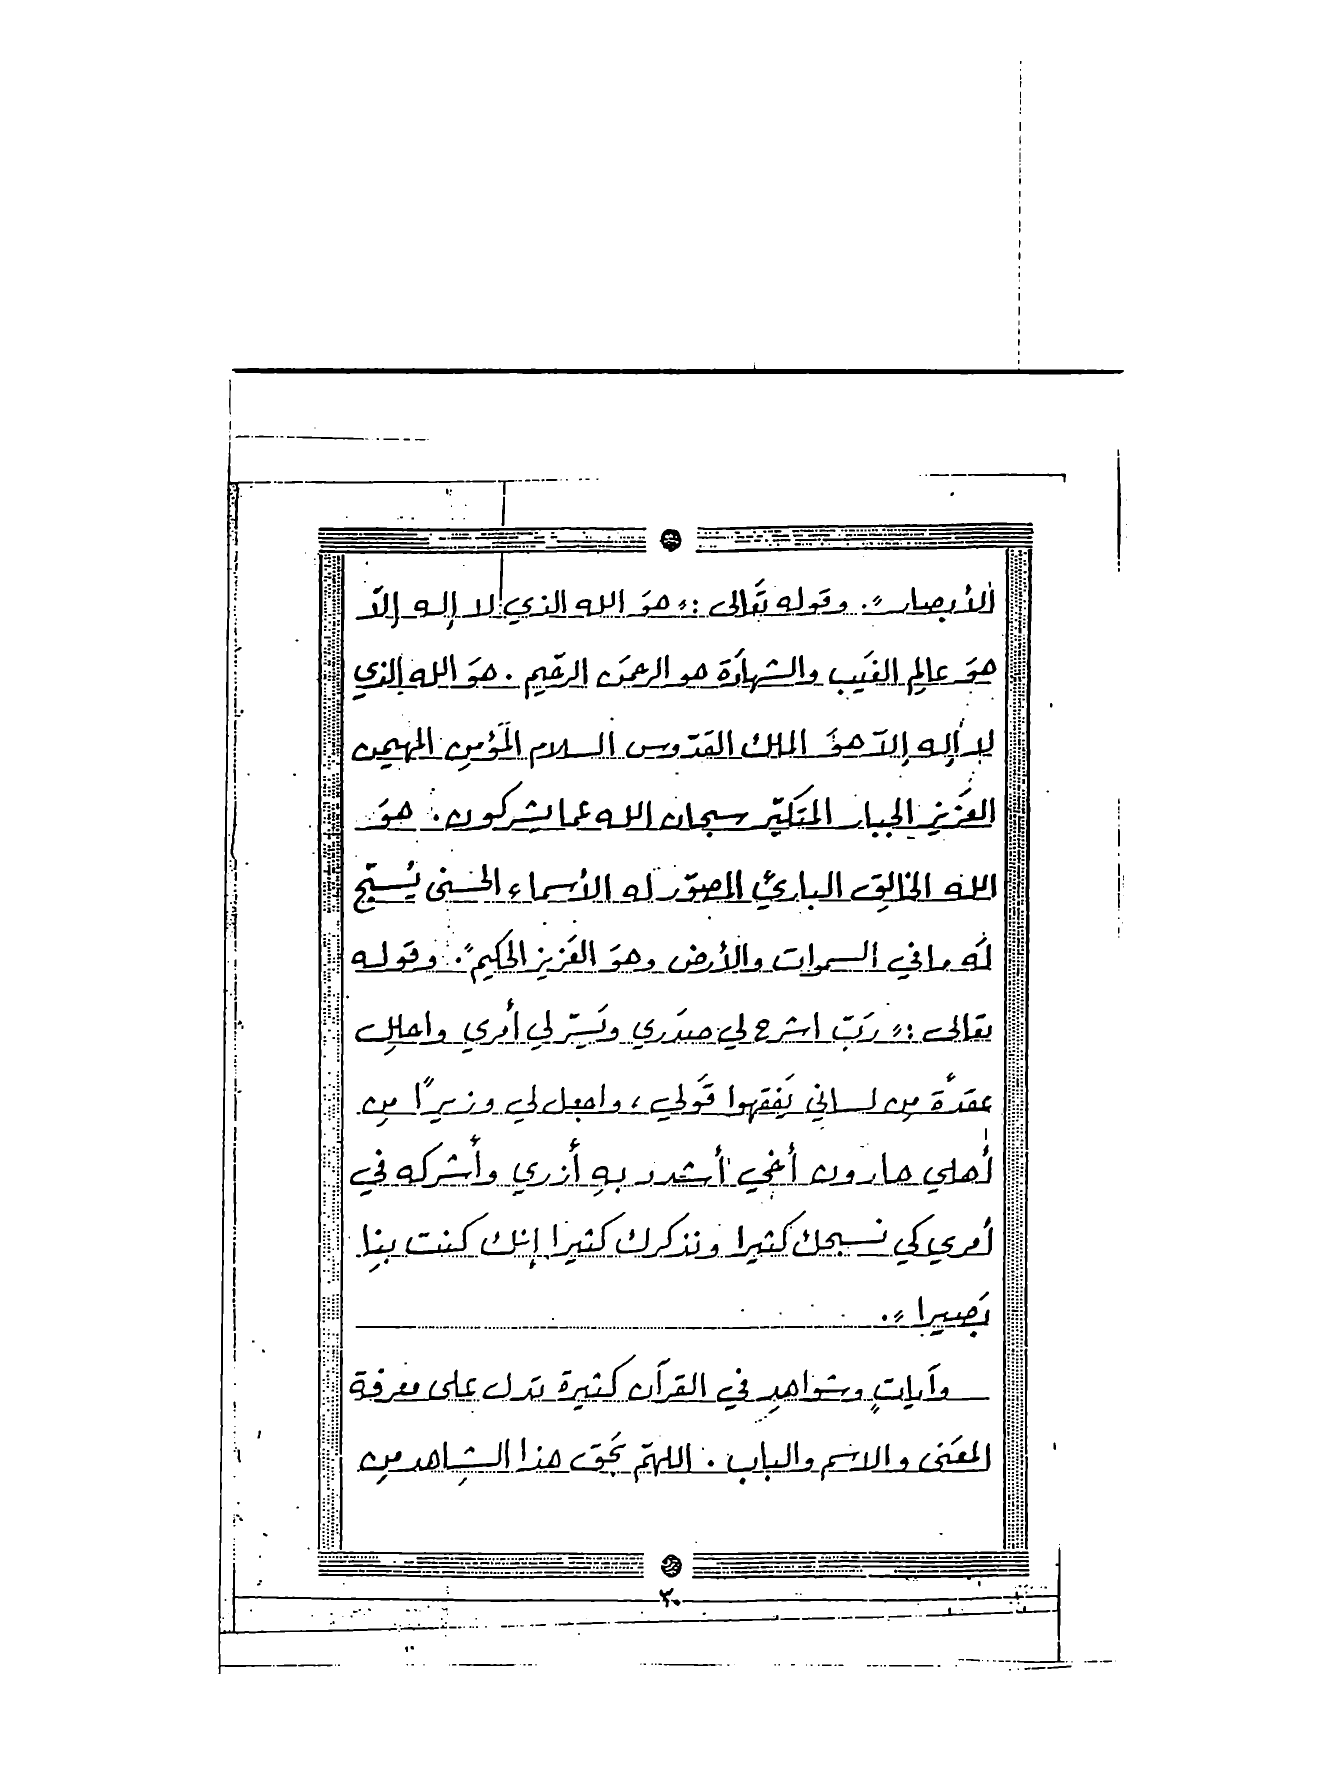 الأبصار ». وقوله تعَالى :« هوَ الله الذي لا إله إلّا
هوَ عالِم الغيَب والشهادَة هو الرحمَن الرحَيم . هوَ الله الذي
لا إله إلّا هوَ الملك القدّوس السلام المؤَمِن المهيمن
العَزيز الجبار المتَكبّر سبحان الله عما يشركون . هوَ
الله الخالِق البارئ المصوّر له الأسماء الحسنى يُسبّح
لَه ما في السموات والأرض وهوَ العَزيز الحكيم ». وقَوله
تعَالى :« رَبّ اشرح لي صدَري ويَسّر لي أمري واحلل
عقدَة مِن لساني يَفقهوا قَولي ، واجعل لي وزيرًا مِن
أهلي هارون أخي أشدد بهِ أزري وأشركه في
أمري كي نسبحك كثيرا ونذكرك كثيرا إنك كنت بنِا
بَصيرا ».
وآيات وشواهد في القرآن كثيرة تدَل على معرفة
المعَنى والاسم والباب . اللهمّ بحَق هذا الشاهد مِن
٣٠